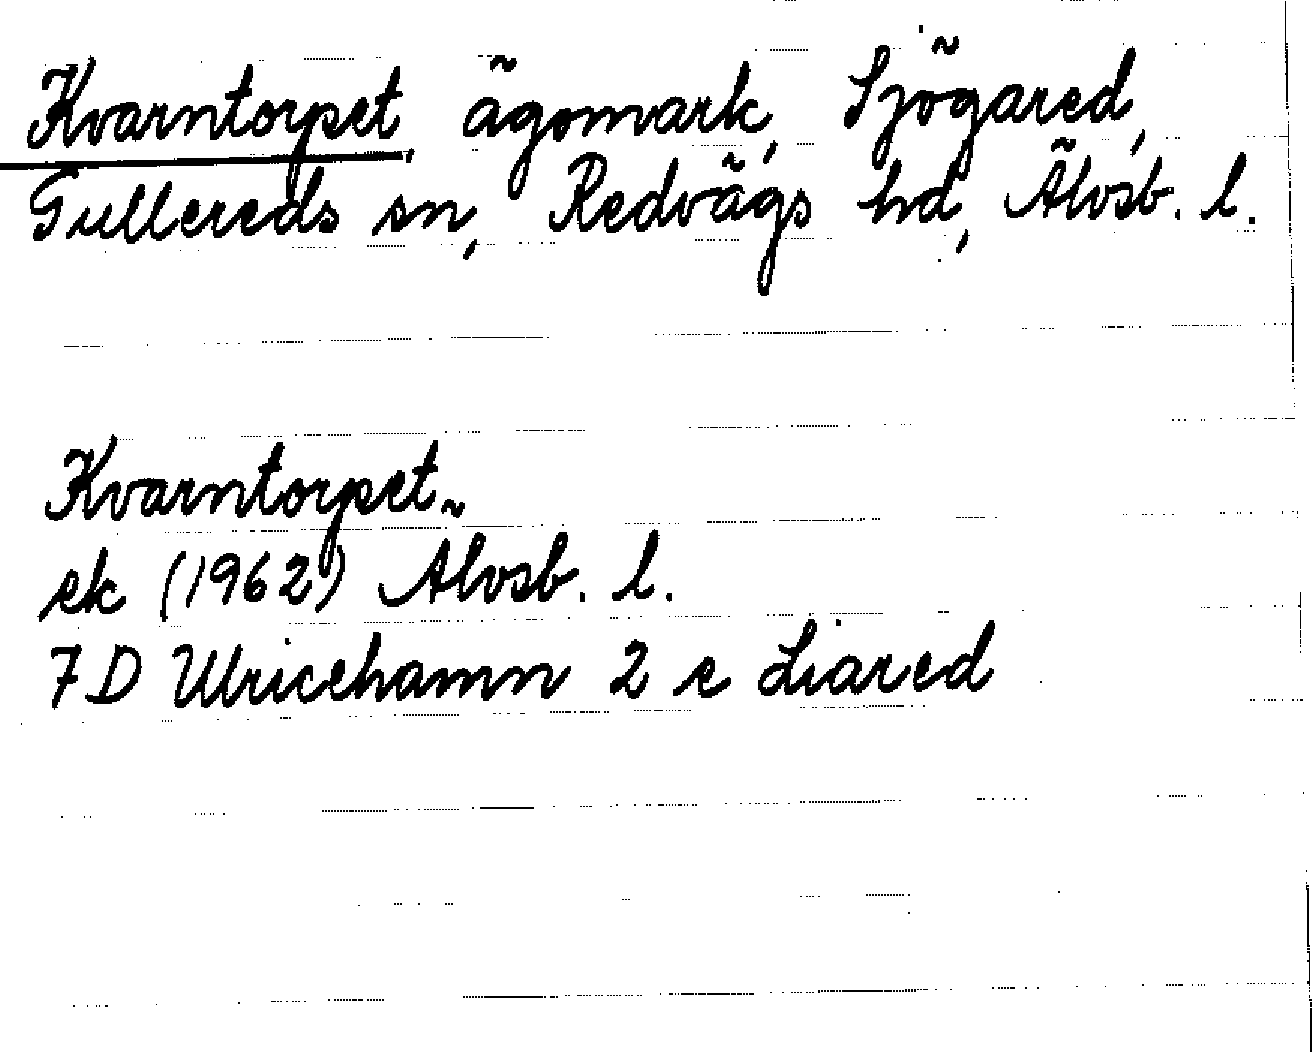 Kvarntorpet, ägomark, Sjögared,
Gullereds sn, Redvägs hd, Älvsb. l.
Kvarntorpet
ek (1962) Älvsb. l.
7D Ulricehamn 2 e Liared